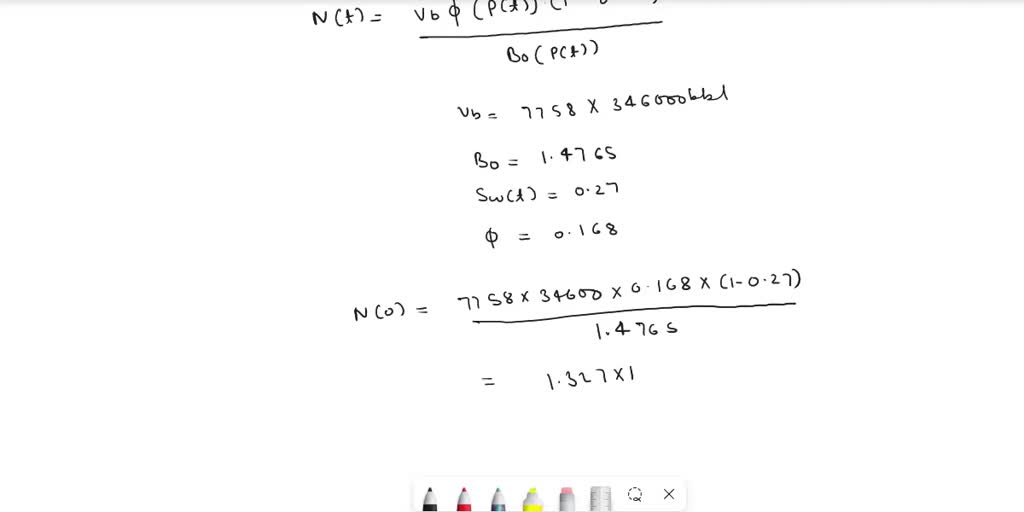 N(t) = Vb φ (P(t)) (1
Bo (P(t))
Vb = 7758 × 346000 bbl
Bo = 1.4765
Sw(t) = 0.27
φ = 0.168
N(0) = 7758 × 34600 × 0.168 × (1-0.27)
1.4765
= 1.327 × 1